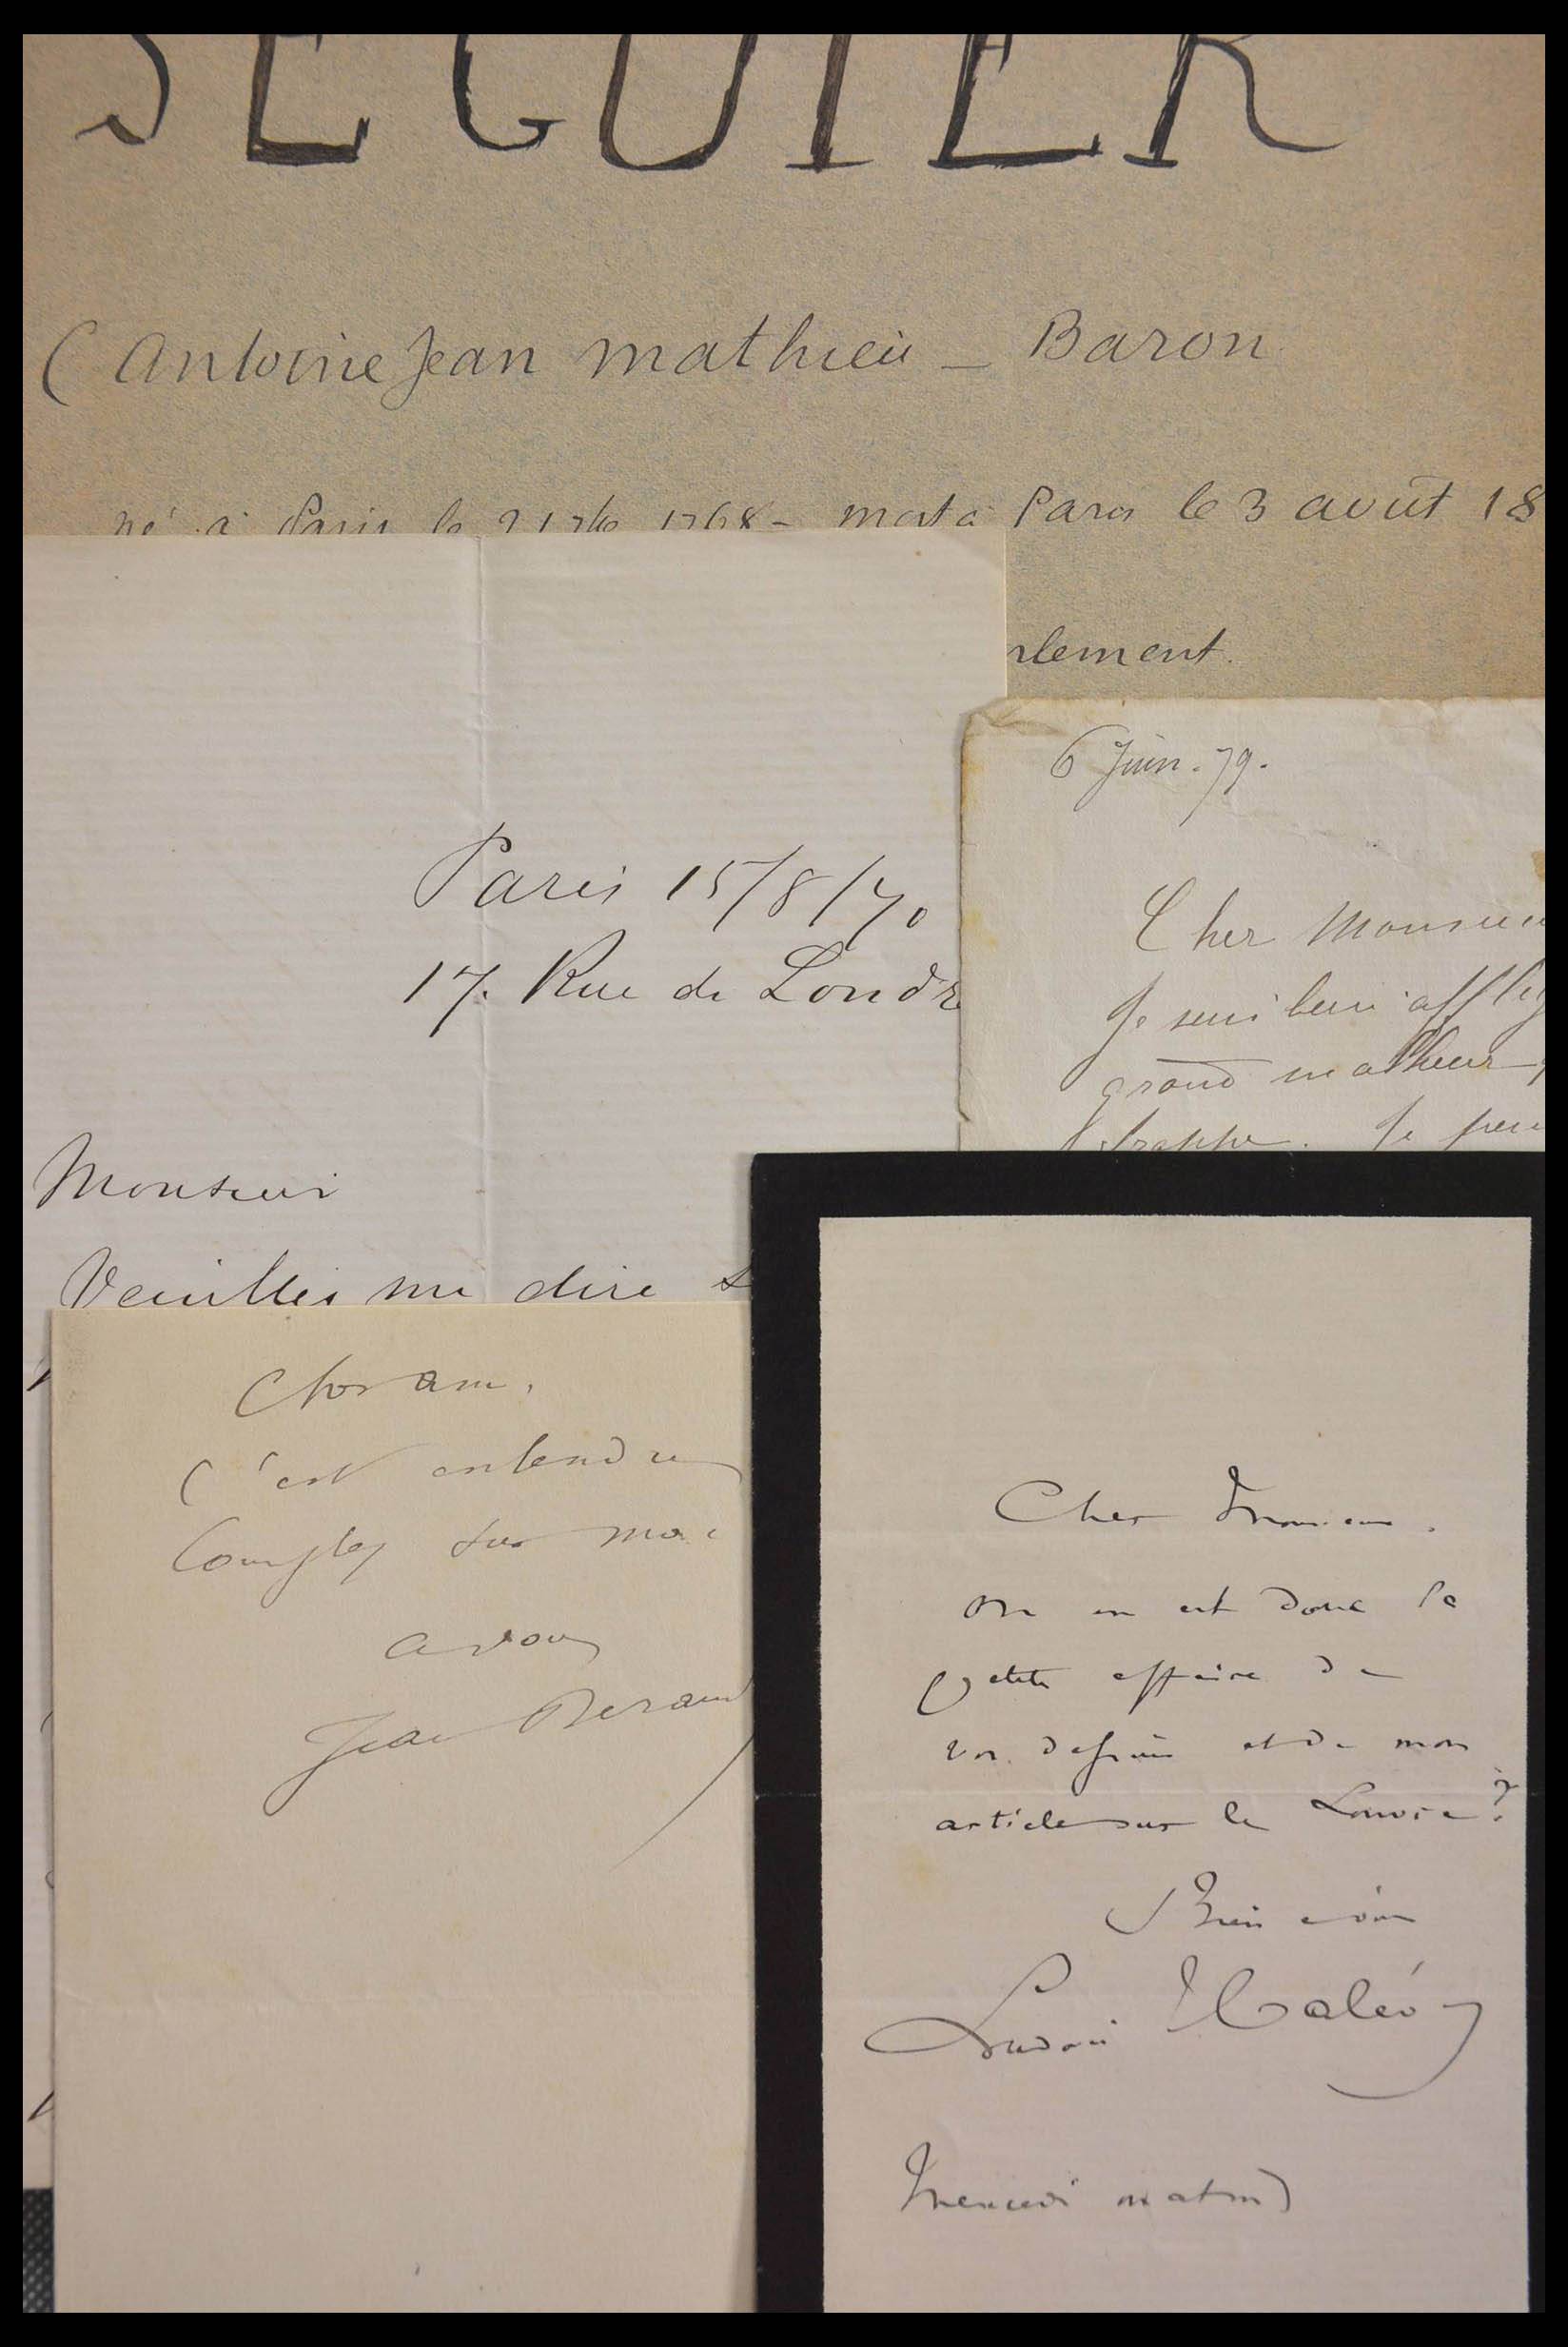 SEGUIER
(Antoine Jean Mathieu - Baron
né à Paris le 21 7bre 1768 - mort à Paris le 3 août 18
rlement.
Paris 15/8/70
17. Rue de Londr
Monsieur
Veuillez me dire
6 Juin. 79.
Cher Monsieu
Je suis bien afflig
grand malheur
frappe. Je
Cher ami,
C'est entendu
Comptez sur moi
a vous
Jean Beraud
Cher Monsieur.
Où en est donc la
petite affaire de
vos dessins et de mon
article sur le Louvre?
Bien à vous
Ludovic Halévy
Mercredi matin